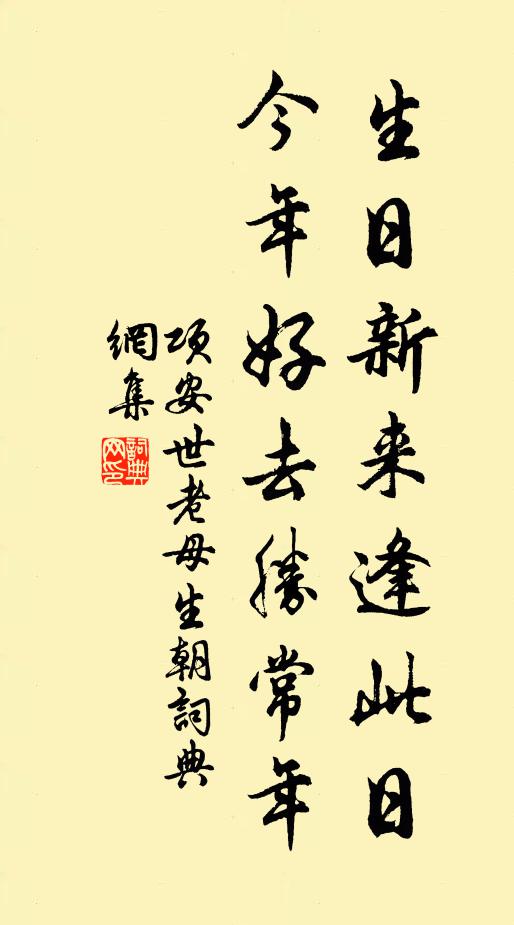 生日新来逢此日
今年好去勝常年
項安世老母生朝詞典
網集
詞典
网印